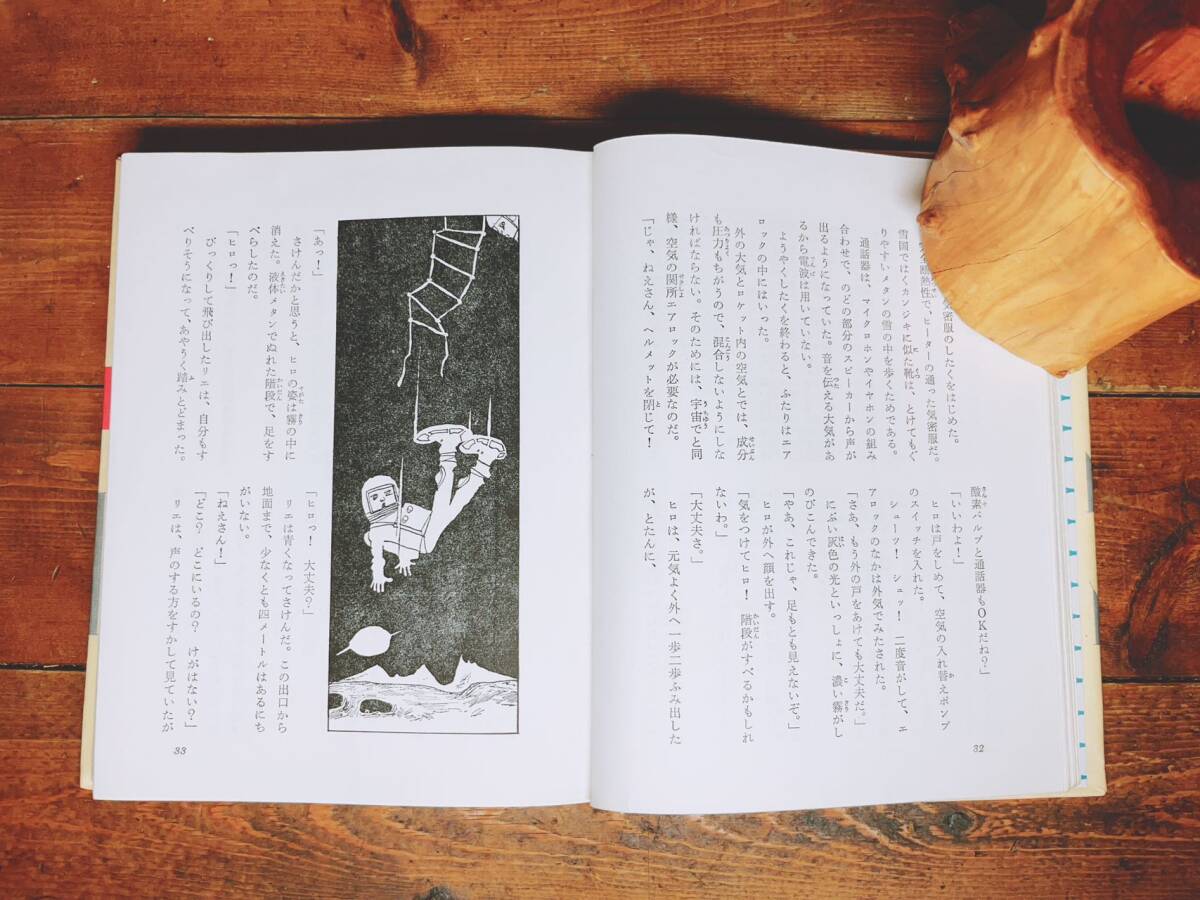 気密服のしたくをはじめた。
断熱性で、ヒーターの通った気密服だ。
雪国ではくカンジキに似た靴は、とけてもぐ
りやすいメタンの雪の中を歩くためである。
通話器は、マイクロホンやイヤホンの組み
合わせで、のどの部分のスピーカーから声が
出るようになっていた。音を伝える大気があ
るから電波は用いていない。
ようやくしたくを終わると、ふたりはエア
ロックの中にはいった。
外の大気とロケット内の空気とでは、成分
も圧力もちがうので、混合しないようにしな
ければならない。そのためには、宇宙でと同
様、空気の関所エアロックが必要なのだ。
「じゃ、ねえさん、ヘルメットを閉じて！
酸素バルブと通話器もOKだね？」
「いいわよ！」
ヒロは戸をしめて、空気の入れ替えポンプ
のスイッチを入れた。
シューッ！　シュッ！　二度音がして、エ
アロックのなかは外気でみたされた。
「さあ、もう外の戸をあけても大丈夫だ。」
にぶい灰色の光といっしょに、濃い霧がし
のびこんできた。
「やあ、これじゃ、足もとも見えないぞ。」
ヒロが外へ顔を出す。
「気をつけてヒロ！　階段がすべるかもしれ
ないわ。」
「大丈夫さ。」
ヒロは、元気よく外へ一歩二歩ふみ出した
が、とたんに、
32
「あっ！」
さけんだかと思うと、ヒロの姿は霧の中に
消えた。液体メタンでぬれた階段で、足をす
べらしたのだ。
「ヒロっ！」
びっくりして飛び出したリエは、自分もす
べりそうになって、あやうく踏みとどまった。
「ヒロっ！　大丈夫？」
リエは青くなってさけんだ。この出口から
地面まで、少なくとも四メートルはあるにち
がいない。
「ねえさん！」
「どこ？　どこにいるの？　けがはない？」
リエは、声のする方をすかして見ていたが
33